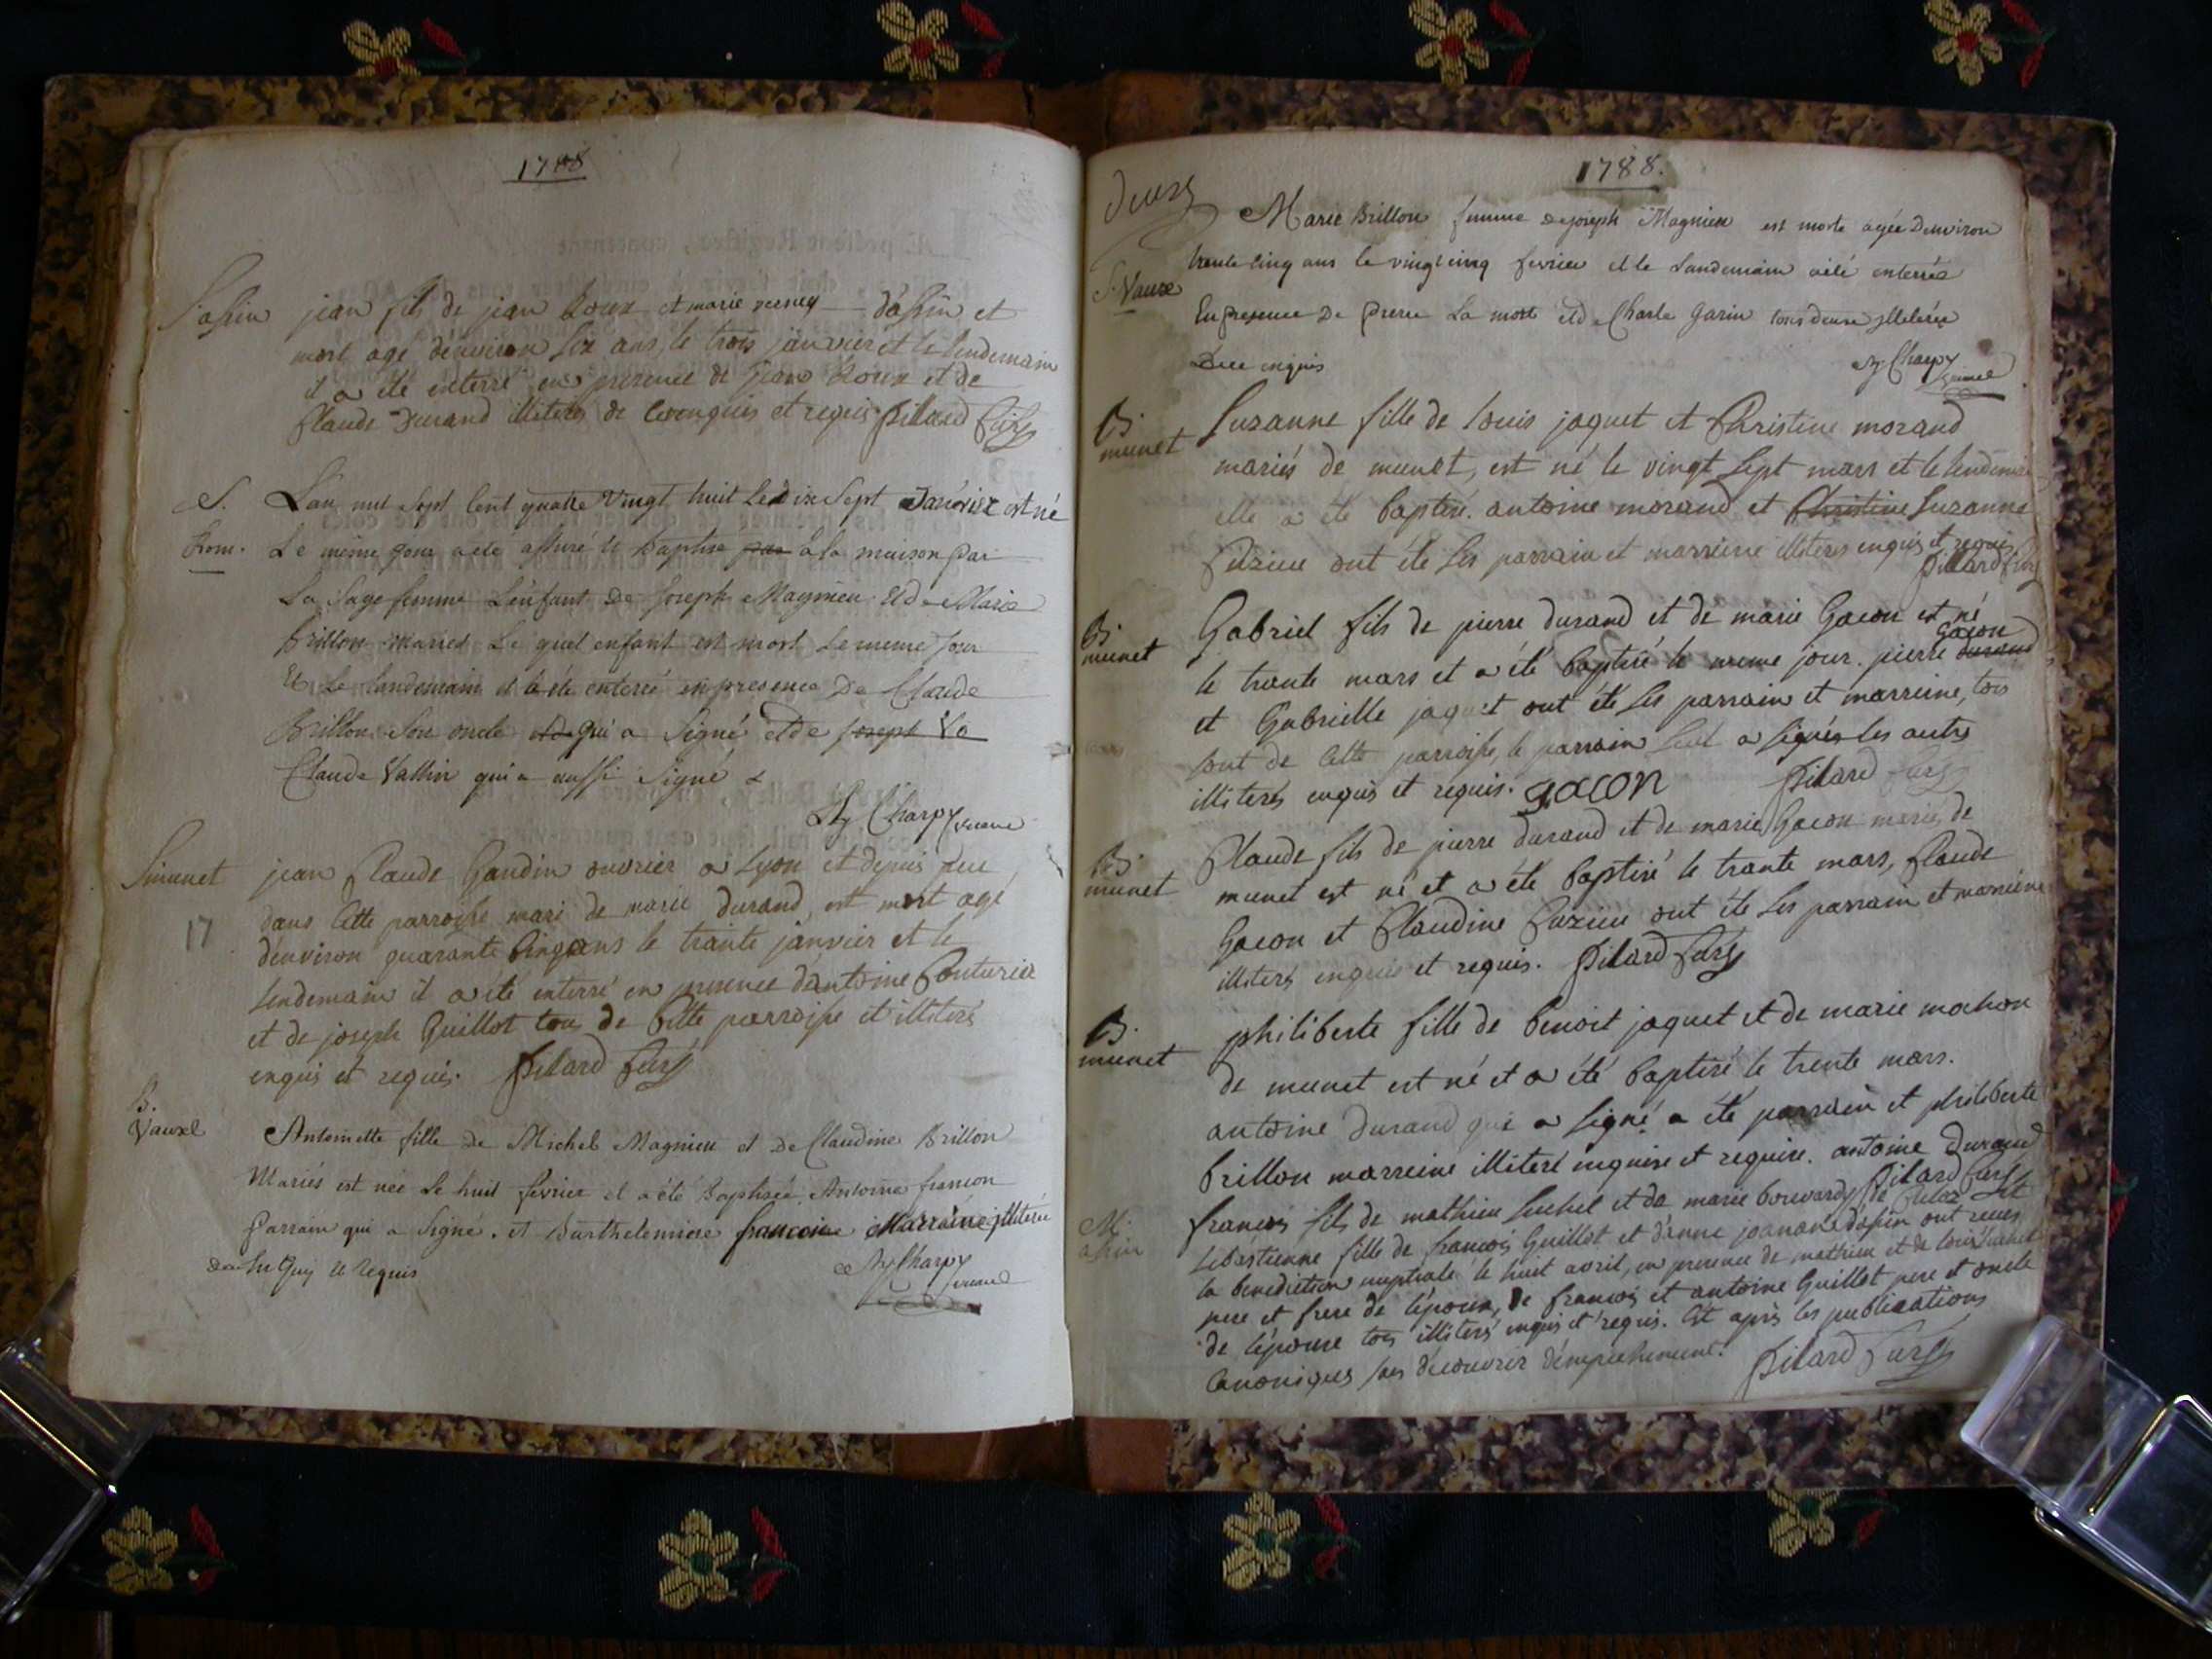 1788
S. assin jean fils de jean Roux et marie verney d'assin et
mort agé d'environ six ans, le trois janvier et le lendemain
il a été enterré en presence de jean Roux et de
Claude Durand illiterés de ce enquis et requis. Pilard Curé
S. L'an mil sept cent quatre vingt huit le dix sept Janvier est né
Le meme jour a été assuré le baptisé par a la maison par
La Sage femme L'enfant de Joseph Magnieu Et de Marie
Brillon mariés Le quel enfant est mort Le meme jour
Et Le Landemain il a été enterré en presence De Claude
Brillon Son oncle et de qui a Signé et de joseph Va
Claude Vallin qui a aussi Signé
Charpy
S. munet jean Claude Gandin ouvrier a Lyon et depuis peu
dans cette parroisse mari de marie durand, est mort agé
17 d'environ quarante cinq ans le trante janvier et le
lendemain il a été enterré en presence d'antoine Couturier
et de joseph Guillot tous de cette parroisse et illiterés
enquis et requis. Pilard Curé
B.
Vauxe Antoinette fille de Michel Magnieu et de Claudine Brillon
Mariés est née Le huit fevrier et a été Baptisée Antoine francon
Parrain qui a Signé. et Barthelemiere francoise Marraine illiterée
Enquis et Requis
Charpy
1788.
deux
Marie Brillon femme de joseph Magnieu est morte agée d'environ
S. Vauxe trente cinq ans le vingt cinq fevrier et le Landemain a été enterrée
En presence De Pierre La mort et de Charle Garin tous deux illiterés
De ce enquis
Charpy
B.
munet Suzanne fille de louis jaquet et Christine morand
mariés de munet, est né le vingt sept mars et le lendemain
elle a été baptisé. antoine morand et Christine Suzanne
Cuzieu ont été les parrain et marreine illiterés enquis et requis
Pilard Curé
B.
munet Gabriel fils de pierre durand et de marie Gacon est né
le trante mars et a été baptisé le meme jour. pierre durand Gacon
et Gabrielle jaquet ont été les parrain et marreine, tous
sont de cette parroisse, le parrain seul a signés les autres
illiterés enquis et requis. gacon Pilard Curé
B.
munet Claude fils de pierre durand et de marie Gacon mariés de
munet est né et a été baptisé le trante mars, Claude
Gacon et Claudine Cuzieu ont été les parrain et marreine
illiterés enquis et requis. Pilard Curé
B.
munet philiberte fille de benoit jaquet et de marie mahon
de munet est né et a été baptisé le trente mars.
antoine durand qui a signé a été parrain et philiberte
brillon marreine illiteré enquise et requise. antoine Durand
Pilard Curé
M.
assin francois fils de mathieu Luchel et de marie bouvard de Et
Sebastienne fille de francois Guillot et d'anne joanan d'assin ont reçus
la benediction nuptiale le huit avril, en presence de mathieu et de louis Luchel
pere et frere de l'époux, de francois et antoine Guillot pere et oncle
de l'épouse tous illiterés enquis et requis. Et après les publications
Canoniques sans découvrir d'empechement. Pilard Curé